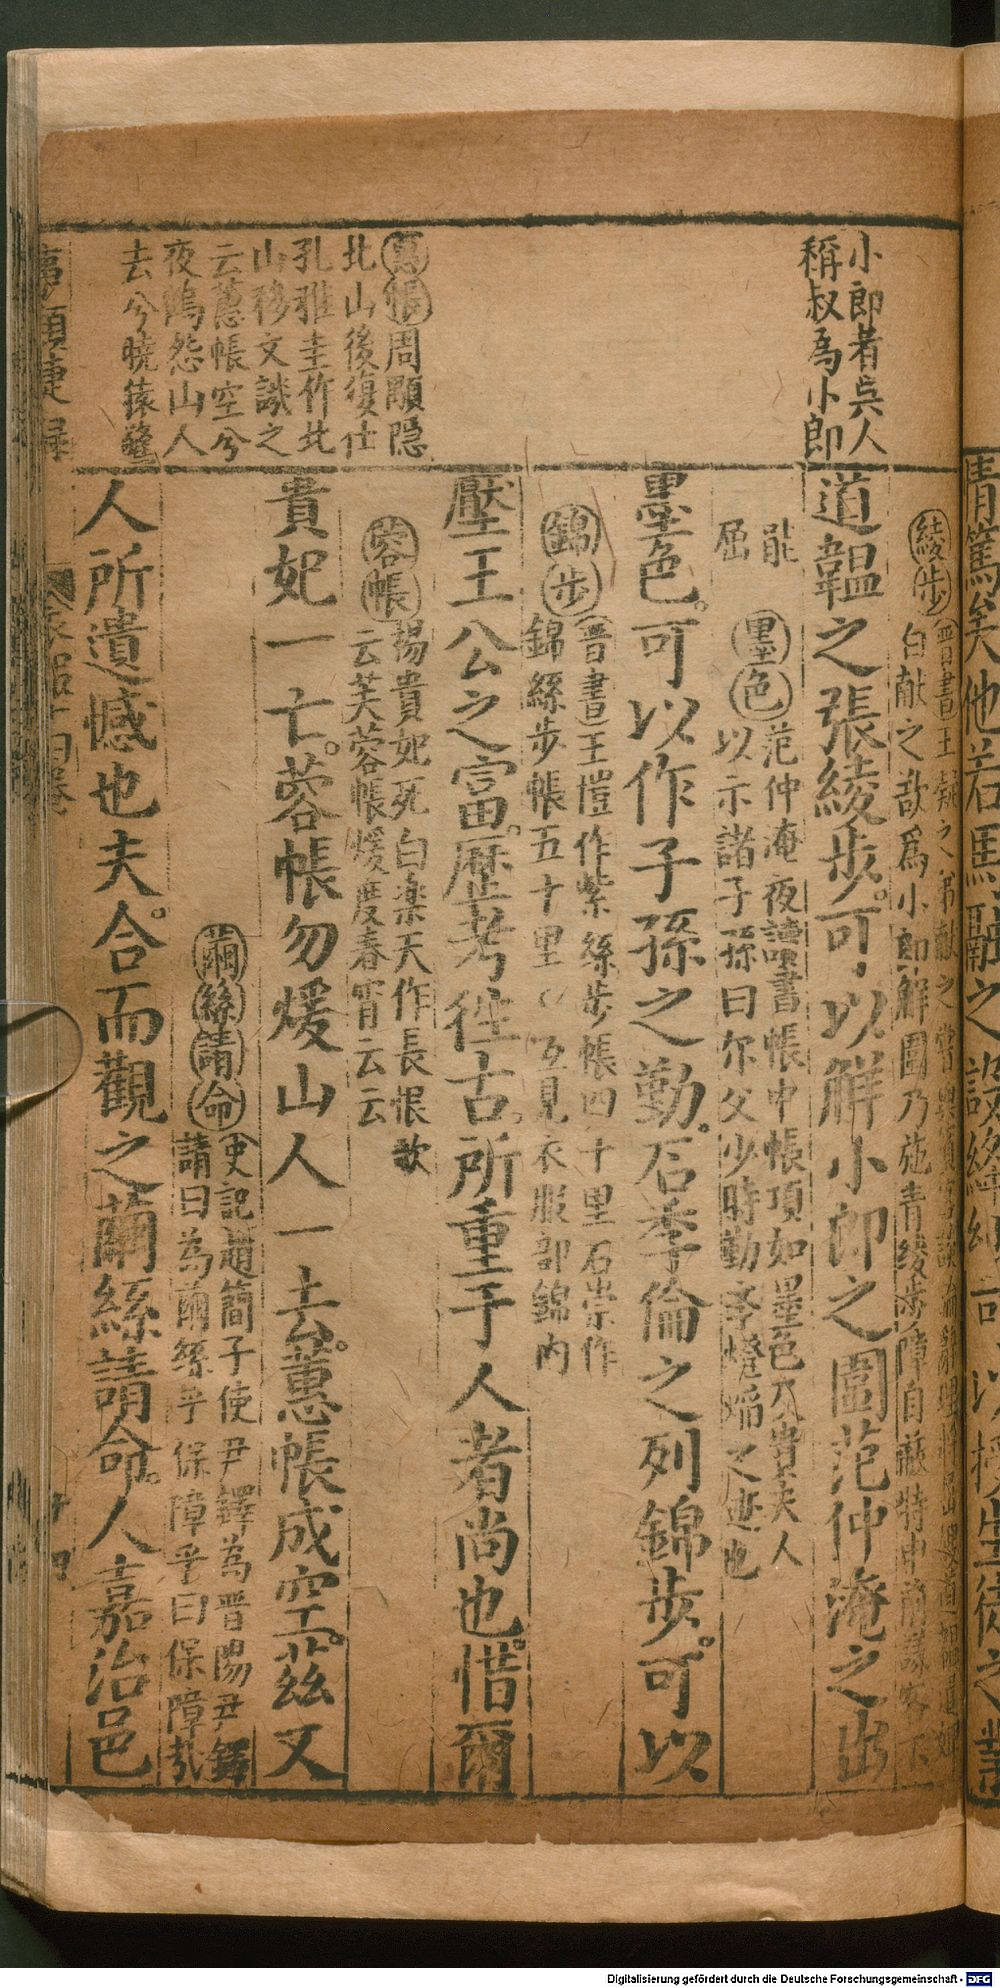 小郎者吳人
稱叔爲小郎
蕙帳周顒隐
北山後復仕
孔雅圭作北
山移文譏之
云蕙帳空兮
夜鶴怨山人
去兮曉猿驚
綾步晋書王凝之弟献之嘗與賓客談
白献之欲爲小郎解圍乃施青綾步障自蔽
道韞之張綾步可以解小郎之圍范仲淹之出
能
屈
墨色范仲淹夜讀書帳中帳項如墨色夫人
以示諸子孫曰尔父少時勤斈燈烟之迹也
墨色可以作子孫之勤石季倫之列錦步可以
錦步晋書王愷作紫絲步帳四十里石崇作
錦絲步帳五十里互見衣服部錦内
壓王公之富歷考徃古所重于人者尚也惜爾
蓉帳楊貴妃死白楽天作長恨歌
云芙蓉帳煖度春宵云云
貴妃一亡蓉帳勿煖山人一去蕙帳成空茲又
繭絲請命史記趙簡子使尹鐸為晋陽尹鐸
請曰為繭絲乎保障乎曰保障哉
人所遺憾也夫合而觀之繭絲請命人嘉治邑
Digitalisierung gefördert durch die Deutsche Forschungsgemeinschaft - DFG